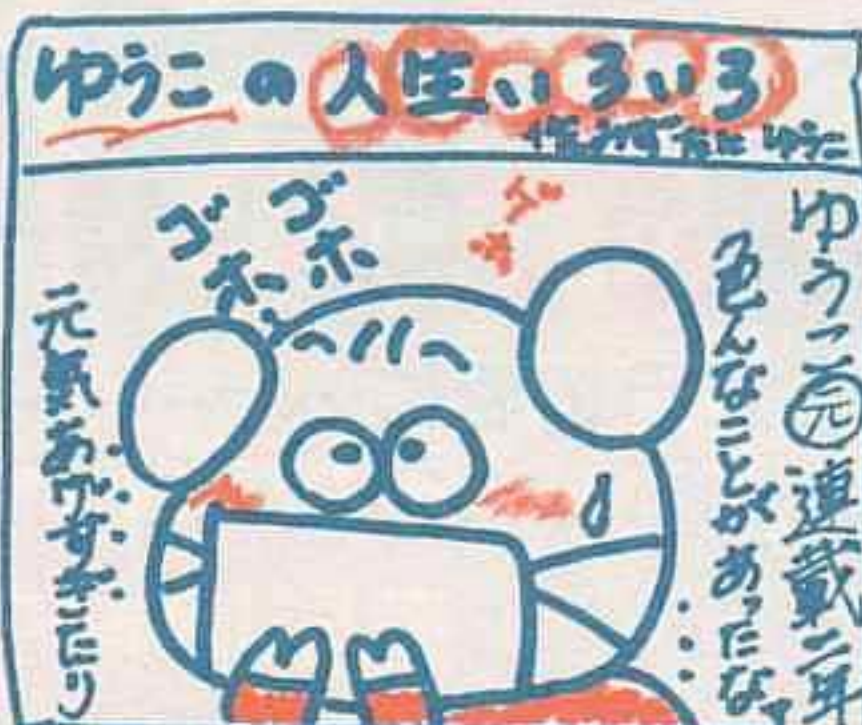 ゆうこの人生いろいろ
作 みずたに ゆうこ
ゆうこ㊄連載二年
色んなことがあったな…
ゴホ
ゴホッ
元気あげすぎたり